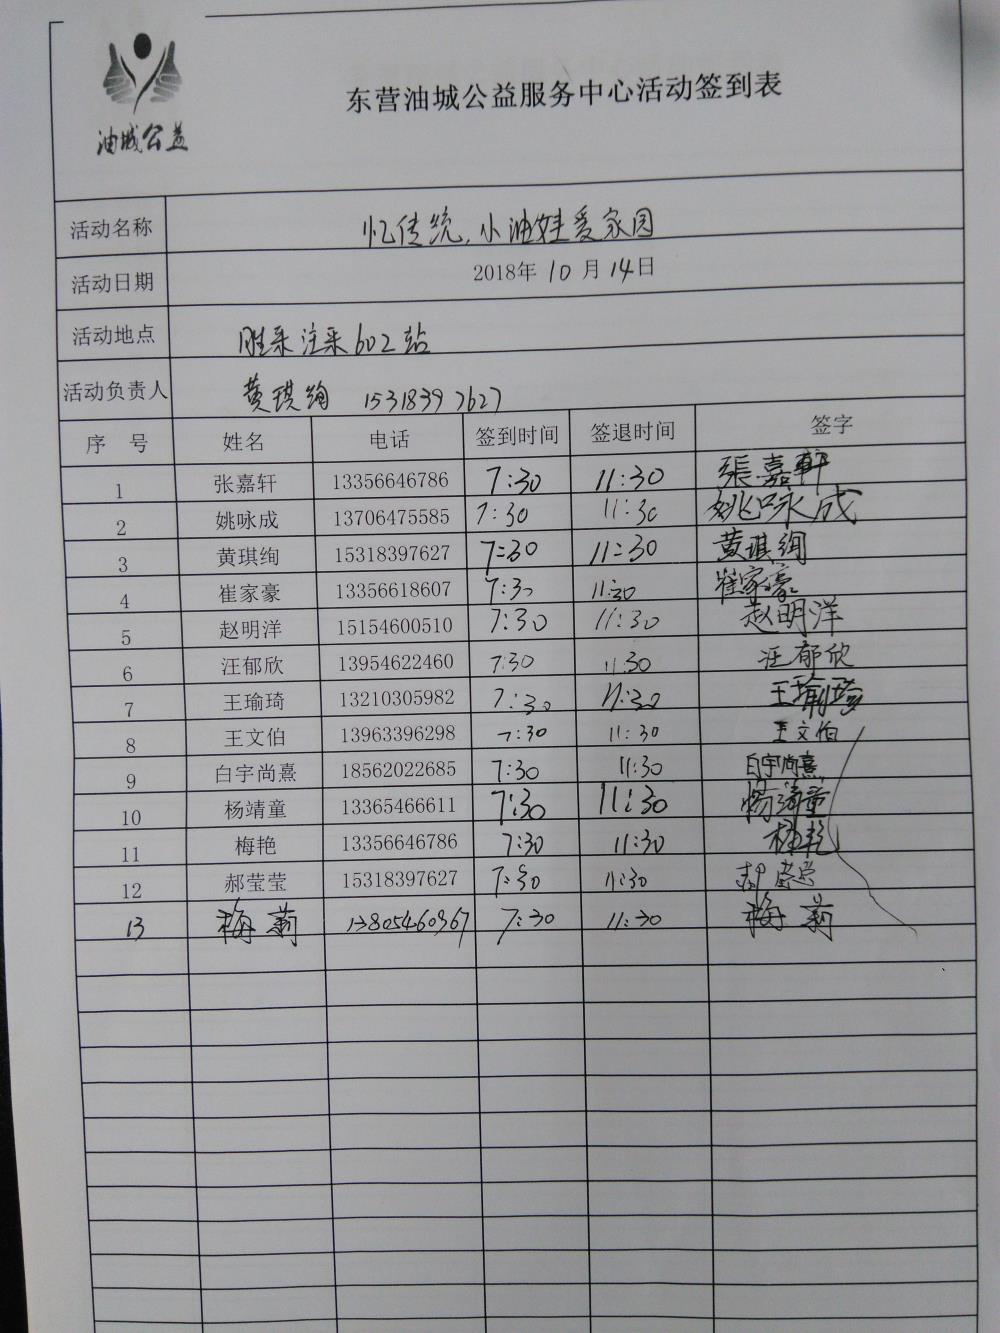 油城公益
东营油城公益服务中心活动签到表
活动名称 忆传统,小油娃爱家园
活动日期 2018年10月14日
活动地点 胜采注采602站
活动负责人 黄琪绚 15318397627
序 号 姓名 电话 签到时间 签退时间 签字
1 张嘉轩 13356646786 7:30 11:30 張嘉軒
2 姚咏成 13706475585 7:30 11:30 姚咏成
3 黄琪绚 15318397627 7:30 11:30 黄琪绚
4 崔家豪 13356618607 7:30 11:30 崔家豪
5 赵明洋 15154600510 7:30 11:30 赵明洋
6 汪郁欣 13954622460 7:30 11:30 汪郁欣
7 王瑜琦 13210305982 7:30 11:30 王瑜琦
8 王文伯 13963396298 7:30 11:30 王文伯
9 白宇尚熹 18562022685 7:30 11:30 白宇尚熹
10 杨靖童 13365466611 7:30 11:30 杨靖童
11 梅艳 13356646786 7:30 11:30 梅艳
12 郝莹莹 15318397627 7:30 11:30 郝莹莹
13 梅莉 13805460367 7:30 11:30 梅莉